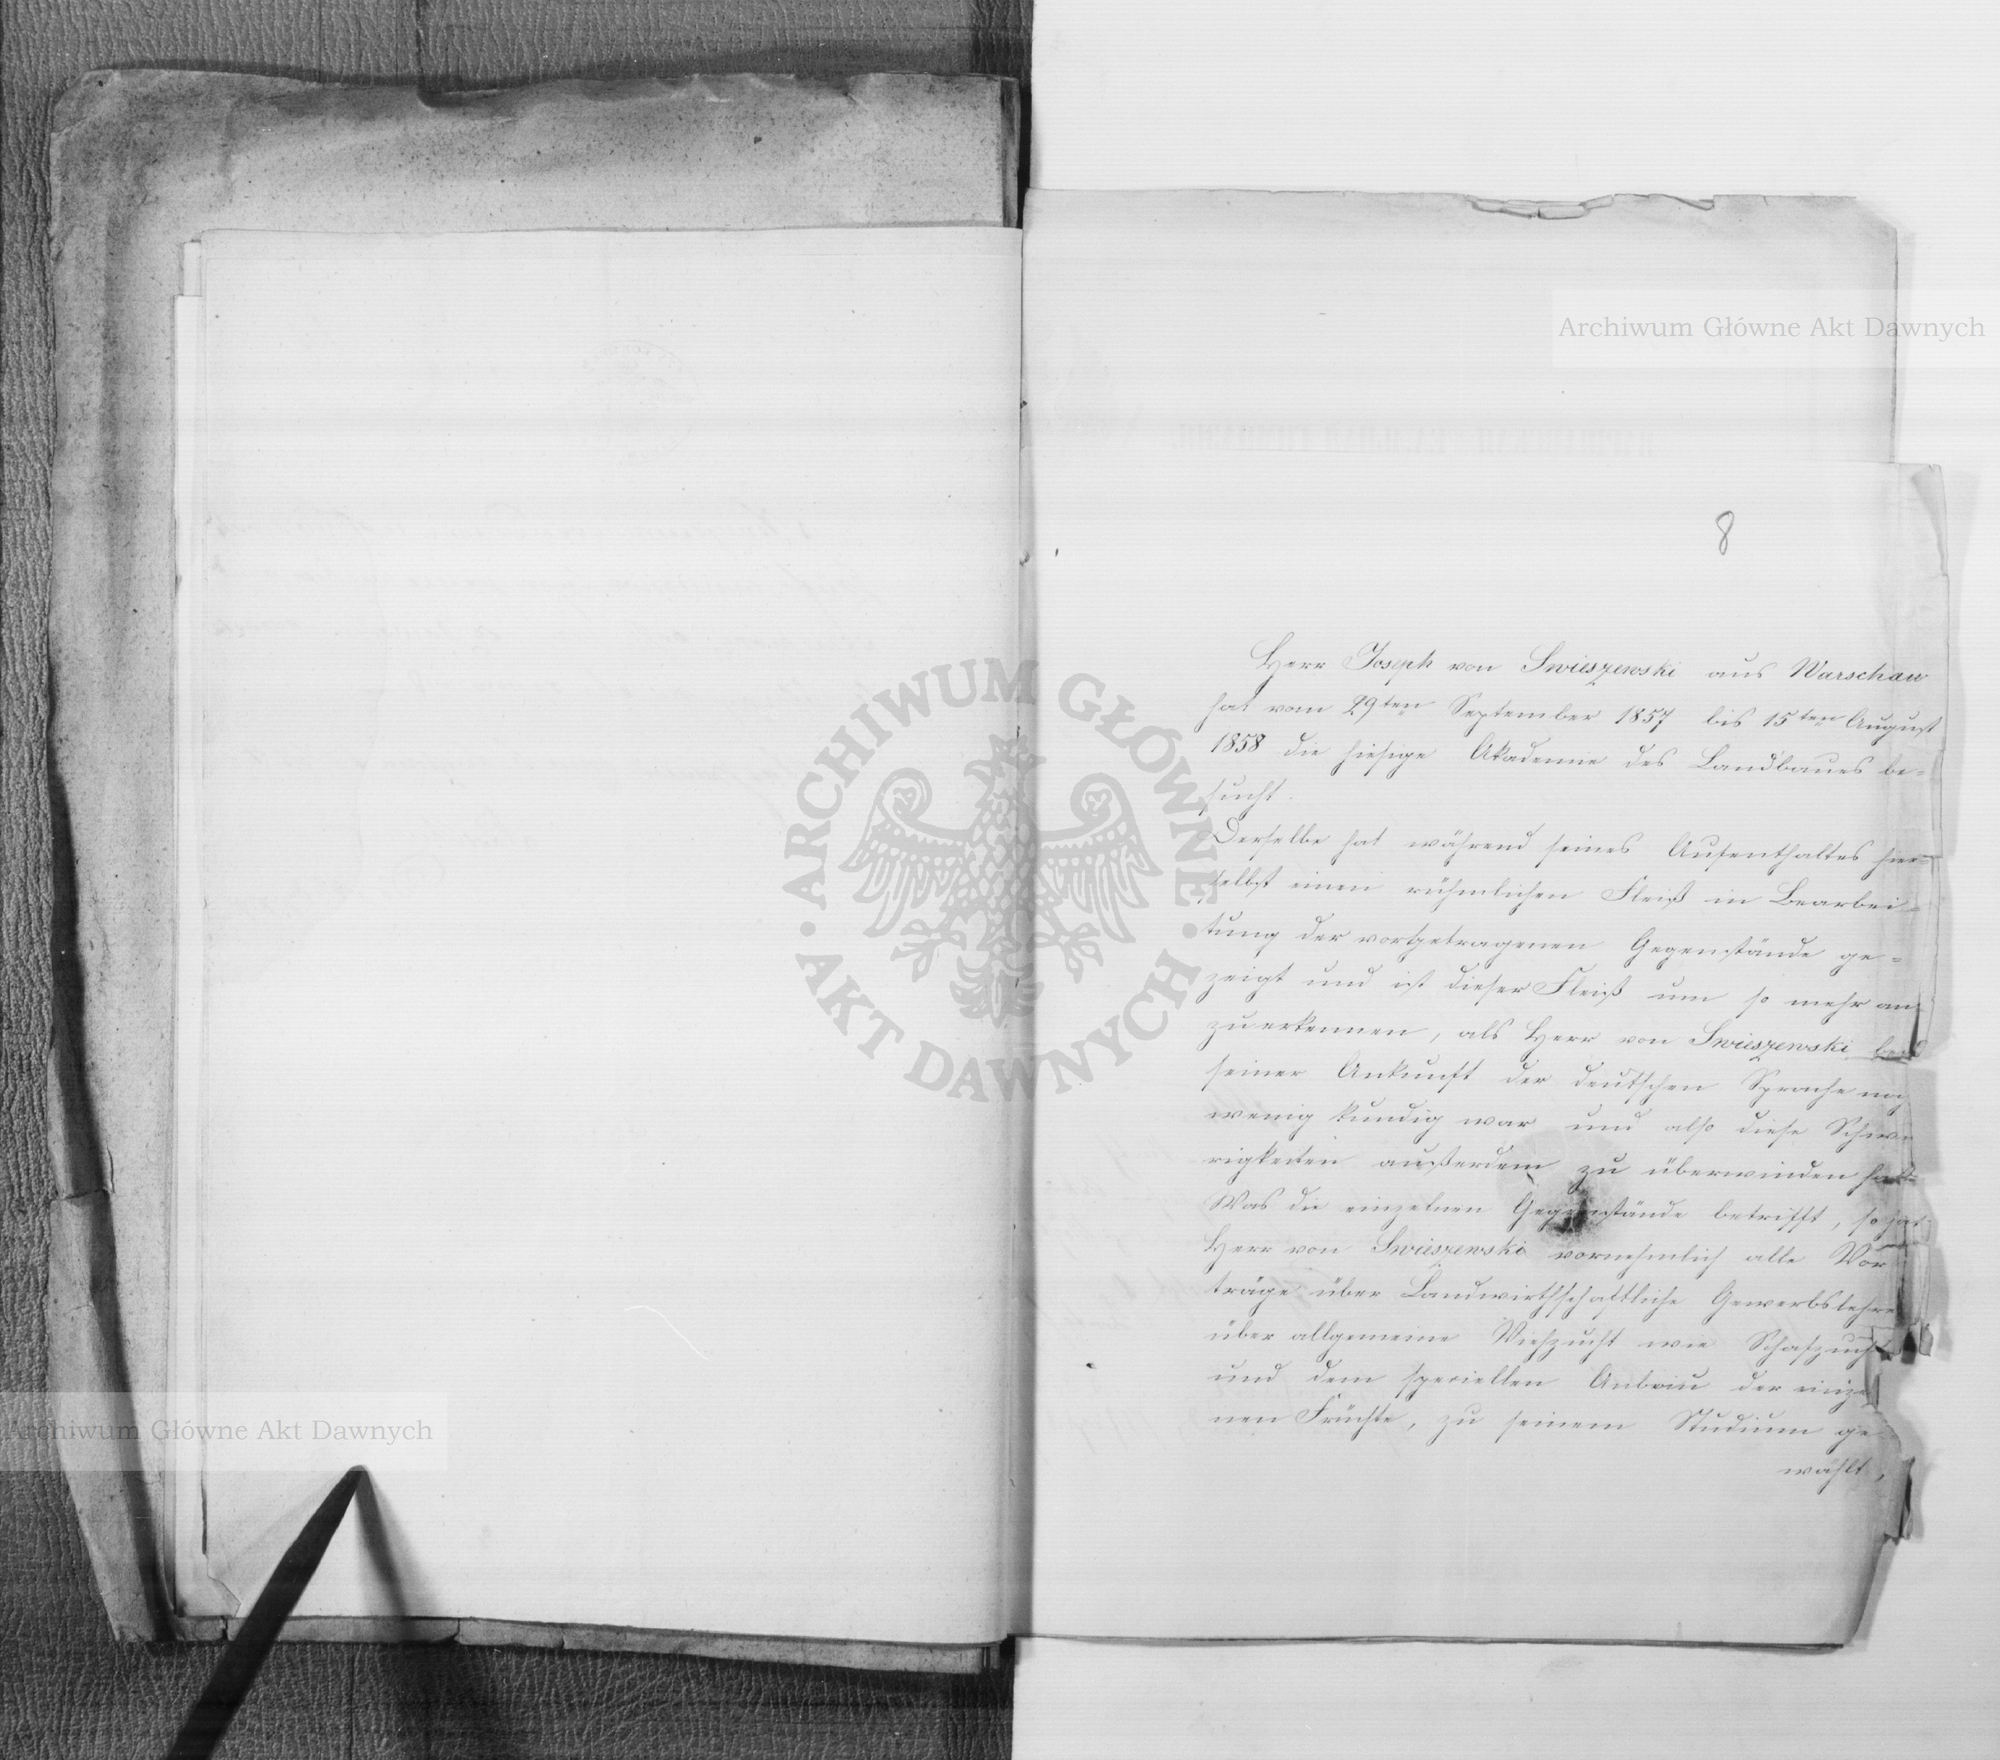 Archiwum Główne Akt Dawnych
8
Herr Joseph von Swieszewski aus Warschau
hat vom 29ten September 1857 bis 15ten August
1858 die hiesige Akademie des Landbaues be-
sucht.
Derselbe hat während seines Aufenthaltes hier-
selbst einen rühmlichen Fleiß in Bearbei-
tung der vorgetragenen Gegenstände ge-
zeigt und ist dieser Fleiß um so mehr an
zuerkennen, als Herr von Swieszewski bei
seiner Ankunft der deutschen Sprache noch
wenig kundig war und also diese Schwie
rigkeiten außerdem zu überwinden hatte
Was die einzelnen Gegenstände betrifft, so hat
Herr von Swieszewski vornehmlich alle Vor
träge über Landwirthschaftliche Gewerbslehre
über allgemeine Viehzucht wie Schafzucht
und dem speciellen Anbau der einzel
nen Früchte, zu seinem Studium ge
wählt,
ARCHIWUM GŁÓWNE
AKT DAWNYCH
Archiwum Główne Akt Dawnych